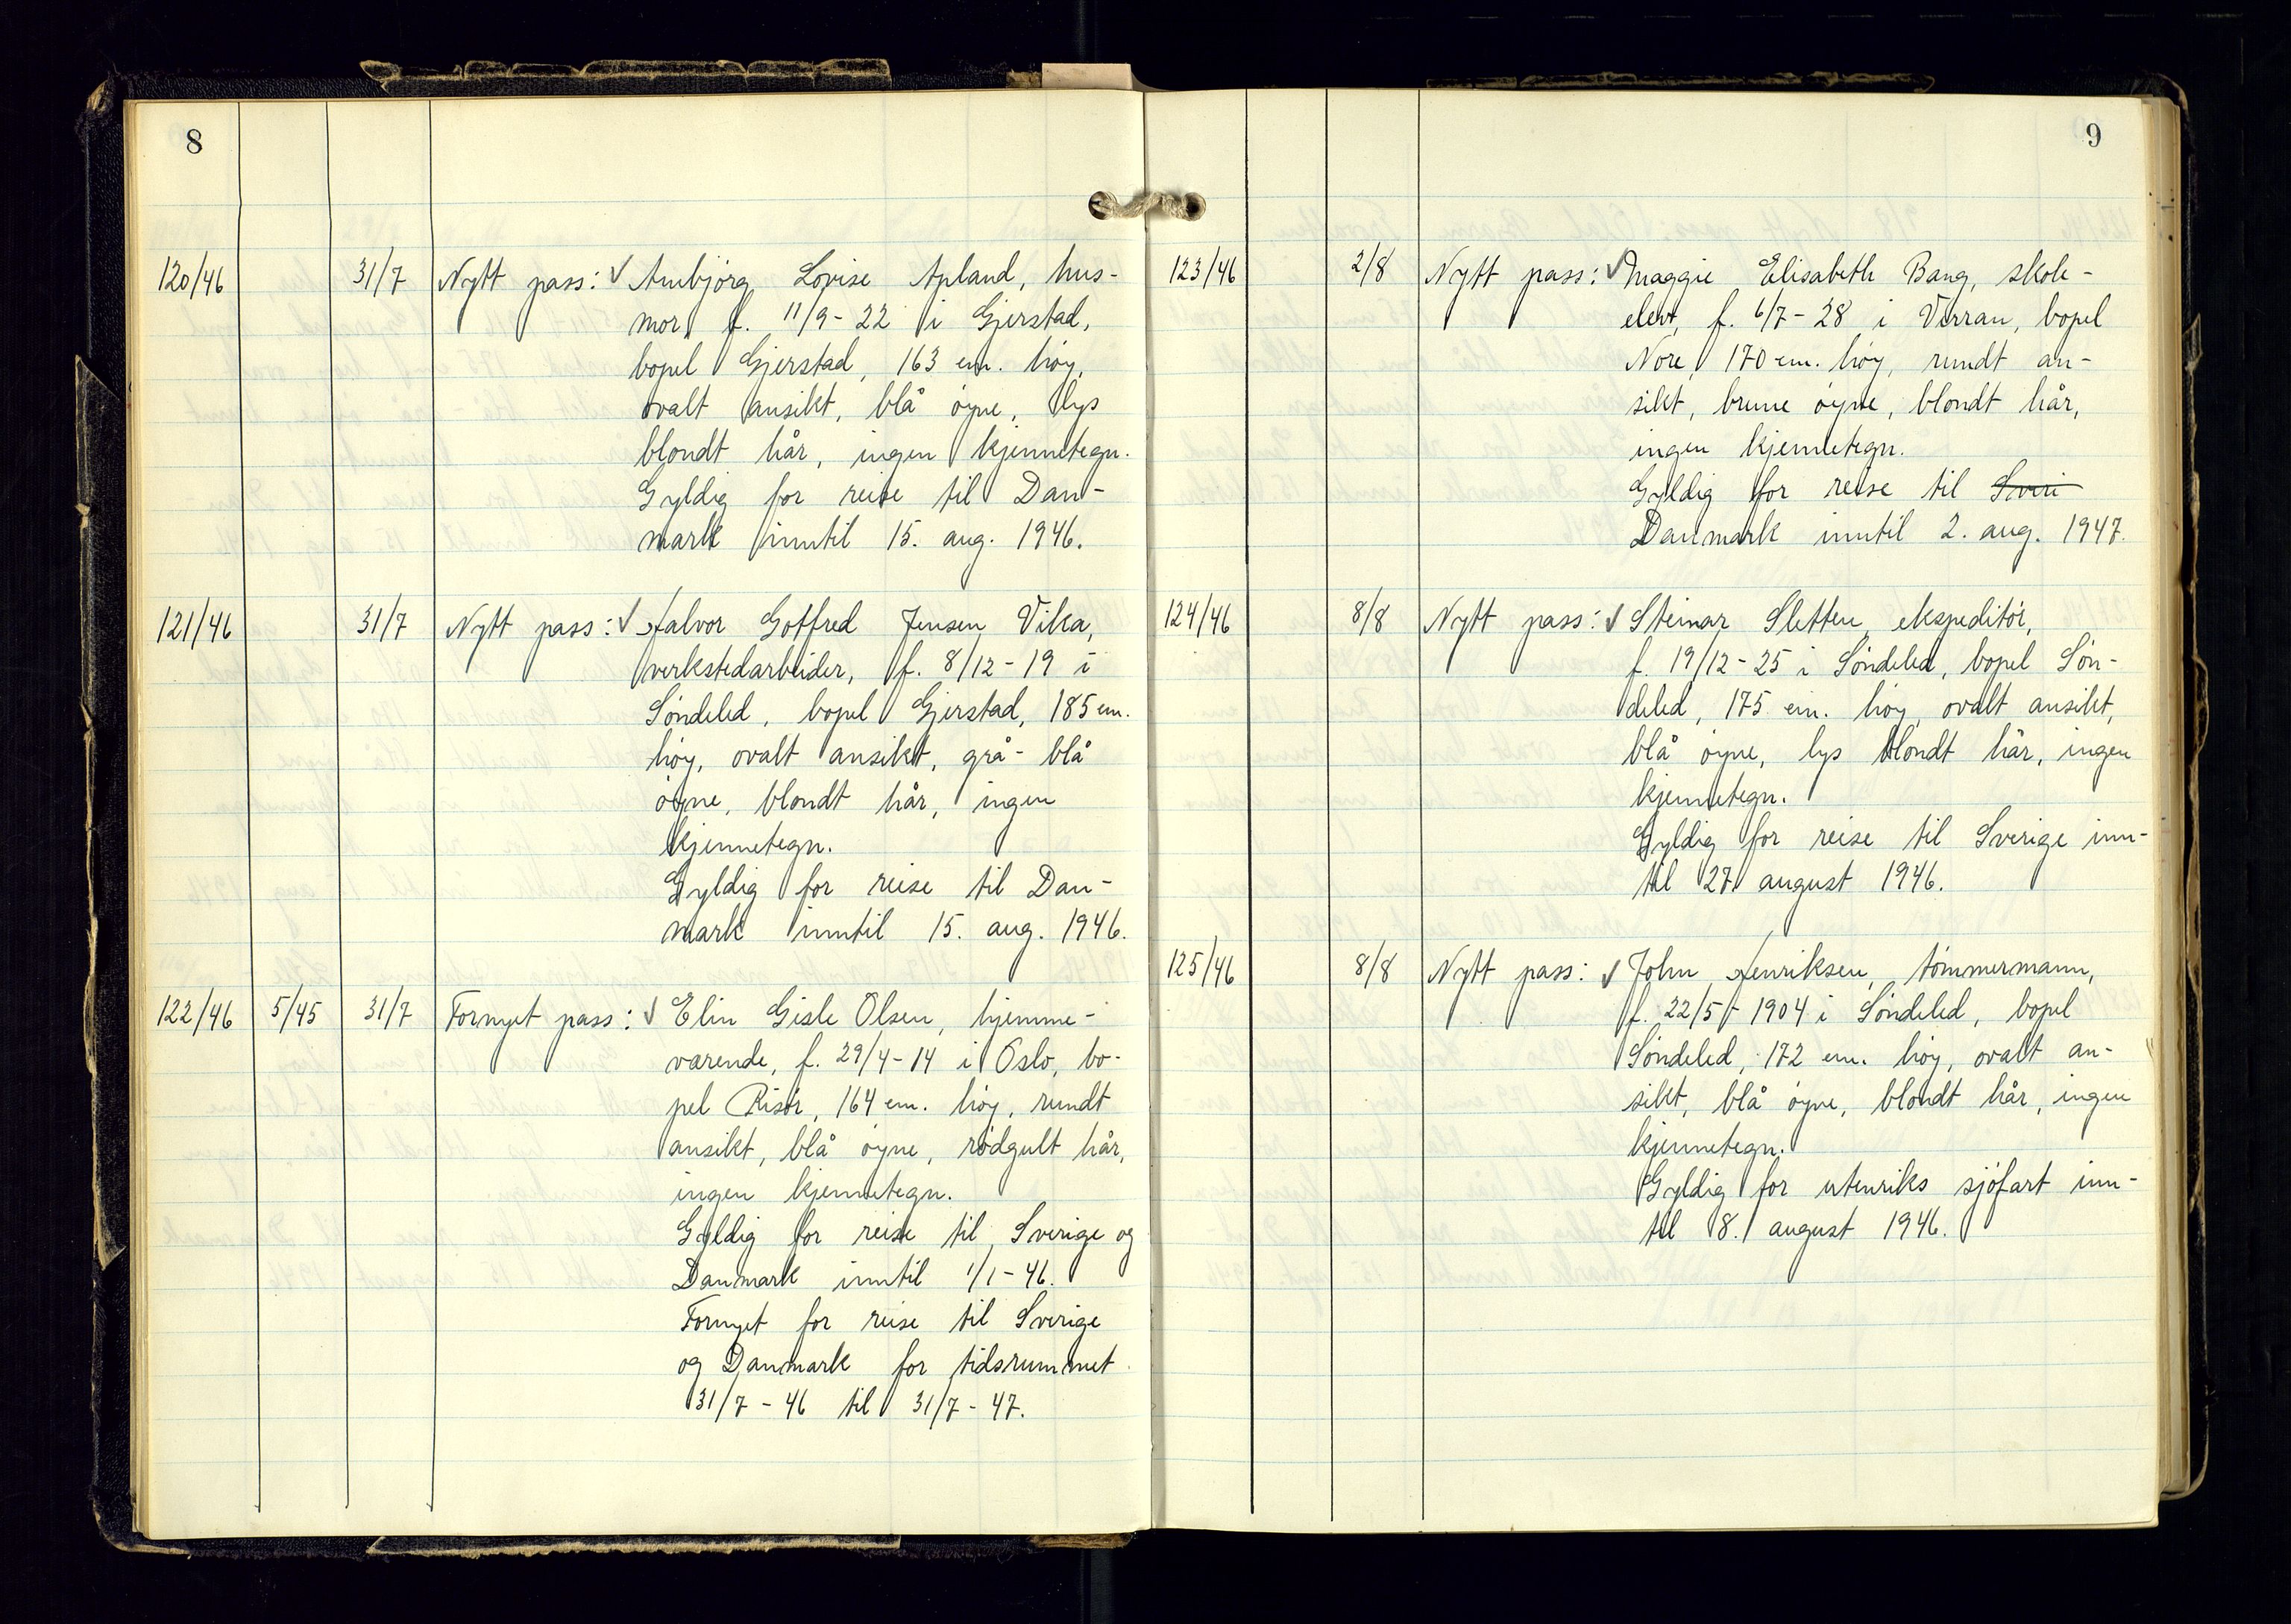 8
120/46 31/7 Nytt pass: √ Ambjörg Lovise Apland, hus-
mor, f. 11/9-22 i Gjerstad,
bopel Gjerstad, 163 cm. höy,
ovalt ansikt, blå öyne, lys
blondt hår, ingen kjennetegn.
Gyldig for reise til Dan-
mark inntil 15. aug. 1946.
121/46 31/7 Nytt pass: √ Halvor Gotfred Jensen Vilka,
verkstedarbeider, f. 8/12-19 i
Söndeled, bopel Gjerstad, 185 cm.
höy, ovalt ansikt, grå-blå
öyne, blondt hår, ingen
kjennetegn.
Gyldig for reise til Dan-
mark inntil 15. aug. 1946.
122/46 5/45 31/7 Fornyet pass: √ Elin Gisle Olsen, hjemme-
værende, f. 29/4-14 i Oslo, bo-
pel Risör, 164 cm. höy, rundt
ansikt, blå öyne, rödgult hår,
ingen kjennetegn.
Gyldig for reise til Sverige og
Danmark inntil 1/1-46.
Fornyet for reise til Sverige
og Danmark for tidsrummet
31/7-46 til 31/7-47.
9
123/46 2/8 Nytt pass: √ Maggie Elisabeth Bang, skole-
elev, f. 6/7-28 i Verran, bopel
Nore, 170 cm. höy, rundt an-
sikt, brune öyne, blondt hår,
ingen kjennetegn.
Gyldig for reise til Sveri
Danmark inntil 2. aug. 1947.
124/46 8/8 Nytt pass: √ Steinar Sletten, ekspeditör,
f. 19/12-25 i Söndeled, bopel Sön-
deled, 175 cm. höy, ovalt ansikt,
blå öyne, lys blondt hår, ingen
kjennetegn.
Gyldig for reise til Sverige inn-
til 27. august 1946.
125/46 8/8 Nytt pass: √ John Henriksen, tömmermann,
f. 22/5-1904 i Söndeled, bopel
Söndeled, 172 cm. höy, ovalt an-
sikt, blå öyne, blondt hår, ingen
kjennetegn.
Gyldig for utenriks sjöfart inn-
til 8. august 1946.